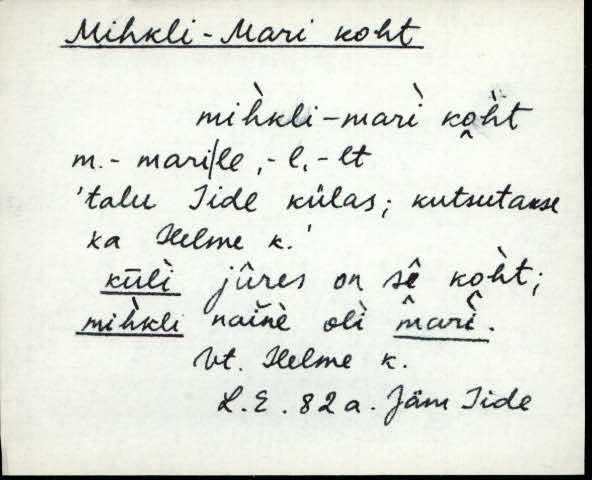 Mihkli-Mari koht
mih̀kli-marì ko̭h̀t
m.- mari|le, -l, -lt
'talu Iide külas; kutsutakse
ka Helme k.'
kūlì jûres on sê koh̀t;
mih̀kli nainè olì marì.
Vt. Helme k.
L.E. 82a. Jäm Iide